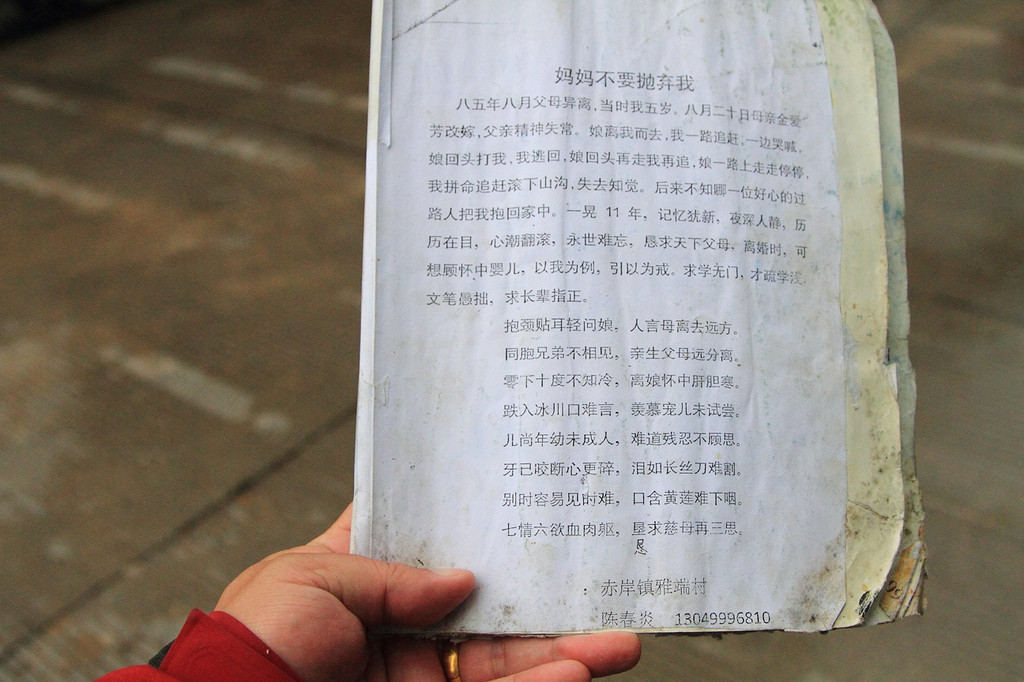 妈妈不要抛弃我
八五年八月父母异离,当时我五岁。八月二十日母亲金爱
芳改嫁,父亲精神失常。娘离我而去,我一路追赶,一边哭喊,
娘回头打我,我逃回,娘回头再走我再追,娘一路上走走停停,
我拼命追赶滚下山沟,失去知觉。后来不知哪一位好心的过
路人把我抱回家中。一晃 11 年,记忆犹新,夜深人静,历
历在目,心潮翻滚,永世难忘,恳求天下父母,离婚时,可
想顾怀中婴儿,以我为例,引以为戒。求学无门,才疏学浅,
文笔愚拙,求长辈指正。
抱颈贴耳轻问娘,人言母离去远方。
同胞兄弟不相见,亲生父母远分离。
零下十度不知冷,离娘怀中肝胆寒。
跌入冰川口难言,羡慕宠儿未试尝。
儿尚年幼未成人,难道残忍不顾思。
牙已咬断心更碎,泪如长丝刀难割。
别时容易见时难,口含黄莲难下咽。
七情六欲血肉躯,垦求慈母再三思。
恳
赤岸镇雅端村
陈春炎 13049996810